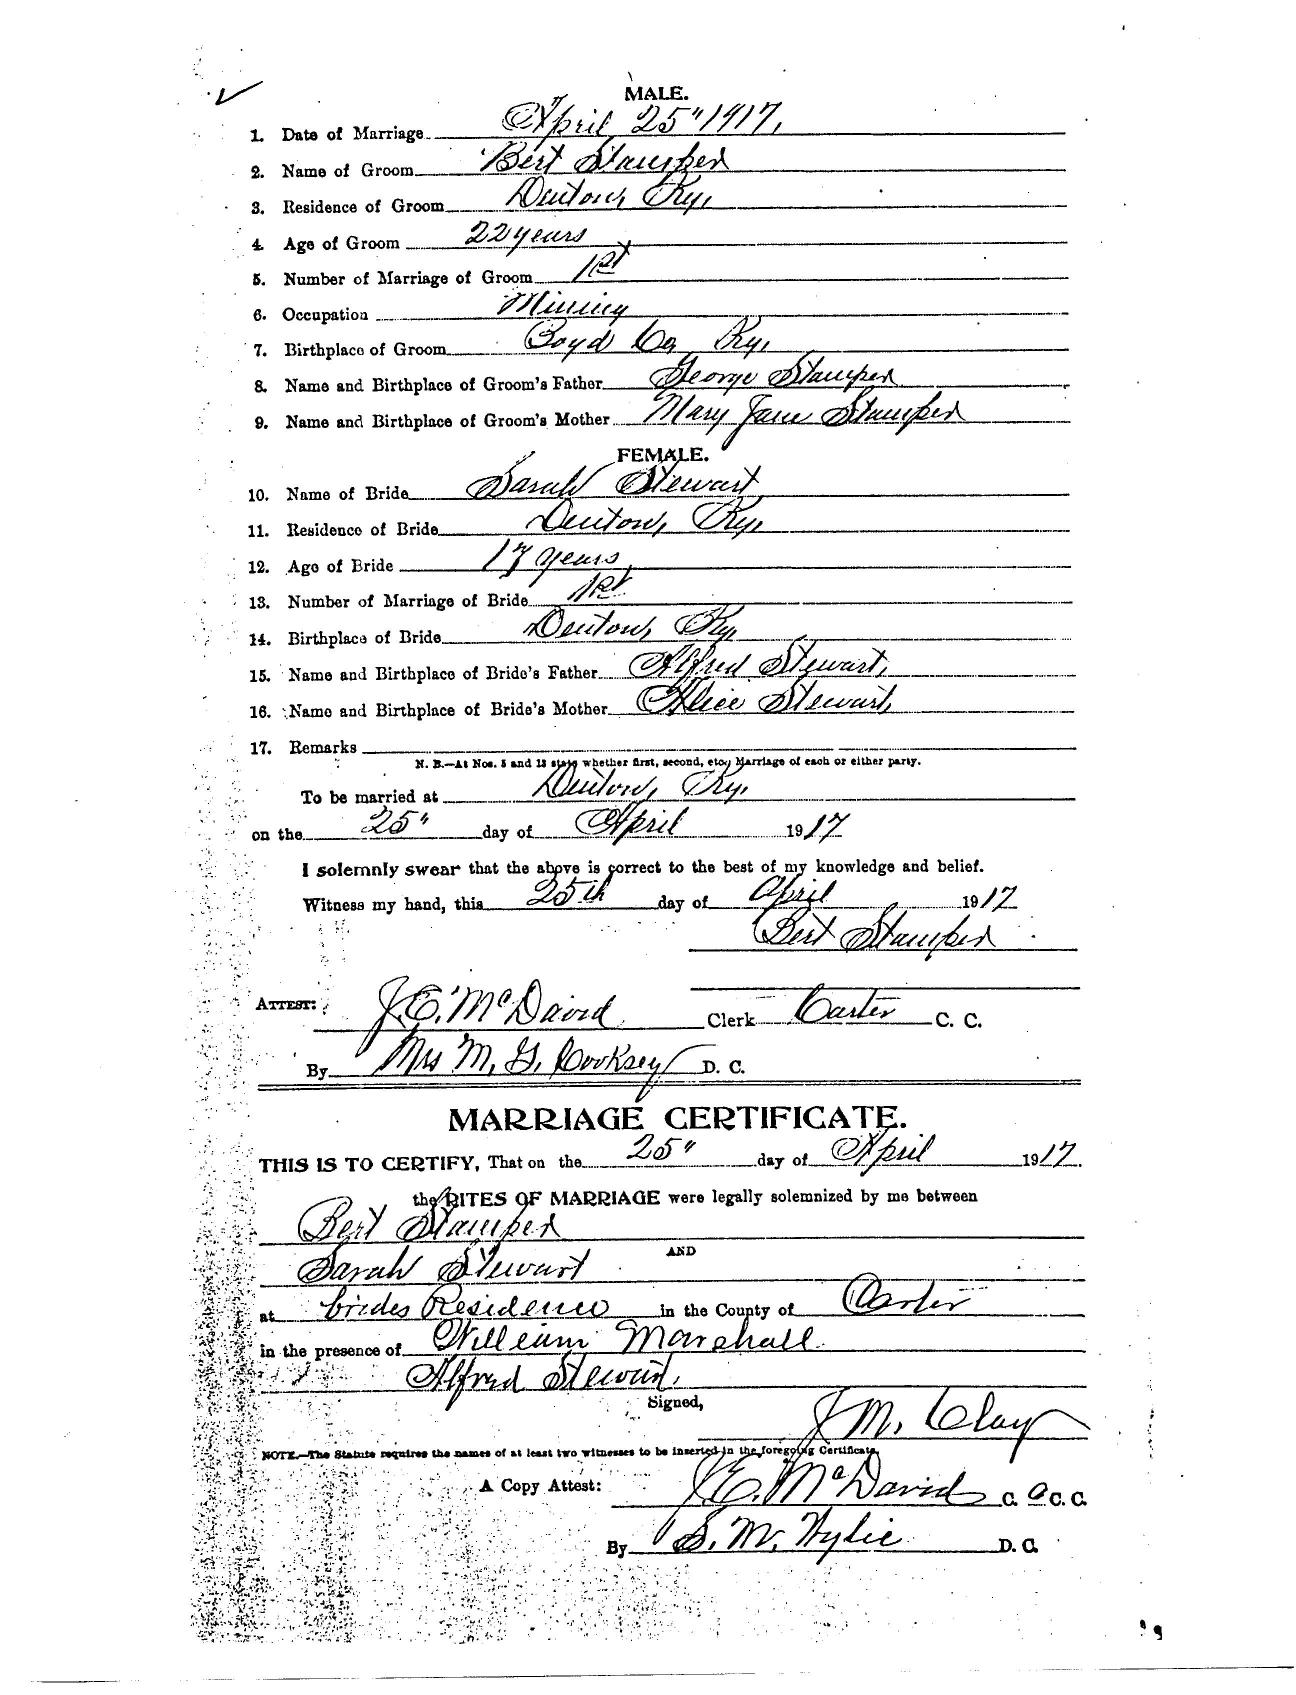 MALE.
1. Date of Marriage April 25" 1917,
2. Name of Groom Bert Stamper
3. Residence of Groom Denton, Ky,
4. Age of Groom 22 years
5. Number of Marriage of Groom 1st
6. Occupation Mining
7. Birthplace of Groom Boyd Co, Ky,
8. Name and Birthplace of Groom's Father George Stamper
9. Name and Birthplace of Groom's Mother Mary Jane Stamper
FEMALE.
10. Name of Bride Sarah Stewart
11. Residence of Bride Denton, Ky,
12. Age of Bride 17 years,
13. Number of Marriage of Bride 1st
14. Birthplace of Bride Denton, Ky,
15. Name and Birthplace of Bride's Father Alfred Stewart,
16. Name and Birthplace of Bride's Mother Alice Stewart,
17. Remarks
N. B.—At Nos. 5 and 13 state whether first, second, etc., Marriage of each or either party.
To be married at Denton, Ky,
on the 25" day of April 1917
I solemnly swear that the above is correct to the best of my knowledge and belief.
Witness my hand, this 25th day of April 1917
Bert Stamper
ATTEST: J. E. McDavid Clerk Carter C. C.
By Mrs M. G. Cooksey D. C.
MARRIAGE CERTIFICATE.
THIS IS TO CERTIFY, That on the 25" day of April 1917.
the RITES OF MARRIAGE were legally solemnized by me between
Bert Stamper
AND
Sarah Stewart
at brides Residence in the County of Carter
in the presence of William Marshall
Alfred Stewart,
Signed, J M. Clay
NOTE.—The Statute requires the names of at least two witnesses to be inserted in the foregoing Certificate.
A Copy Attest: J. E. McDavid C. C. C.
By S. M. Hylie D. C.